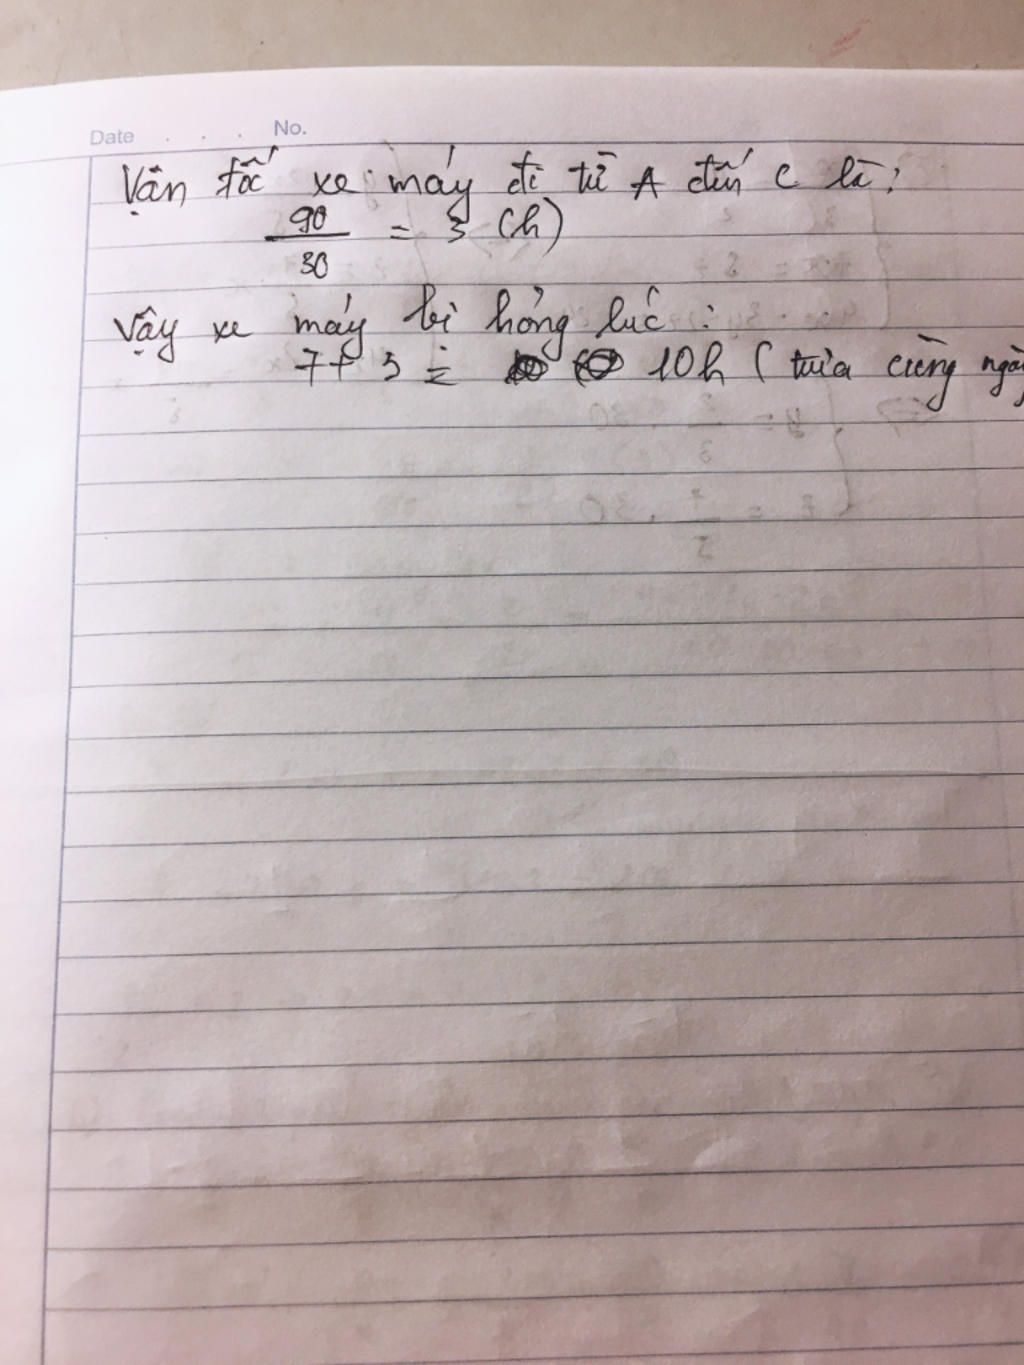 Date . . . No.
Vận tốc xe máy đi từ A đến C là:
90
30
= 3 (h)
Vậy xe máy bị hỏng lúc:
7 + 3 = 10h ( trưa cùng ngày